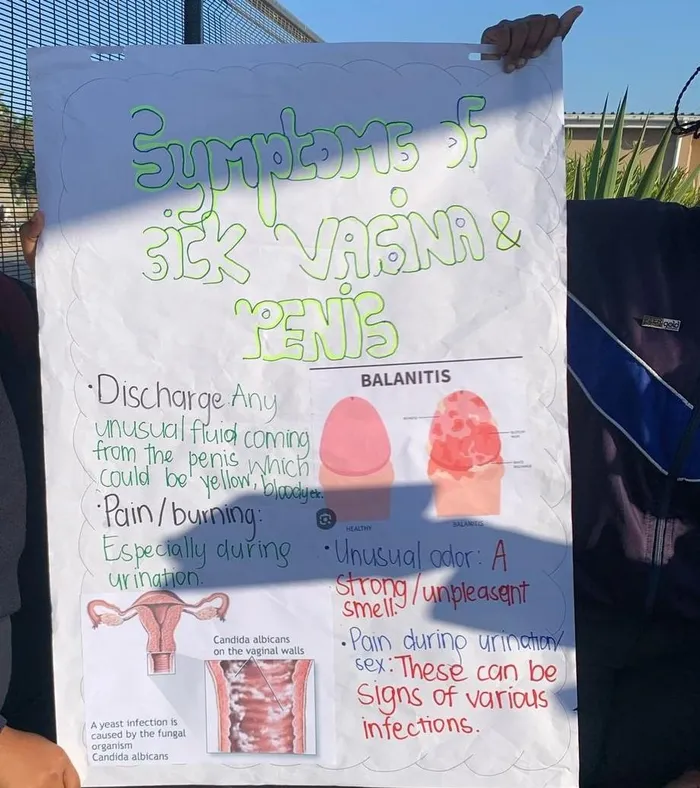 Symptoms of
Sick VAGINA &
PENIS
• Discharge Any
unusual fluid coming
from the penis which
could be yellow, bloody etc.
• Pain/burning:
Especially during
urination.
BALANITIS
HEALTHY
BALANITIS
• Unusual odor: A
strong/unpleasant
smell.
• Pain during urination/
sex: These can be
signs of various
infections.
Candida albicans
on the vaginal walls
A yeast infection is
caused by the fungal
organism
Candida albicans